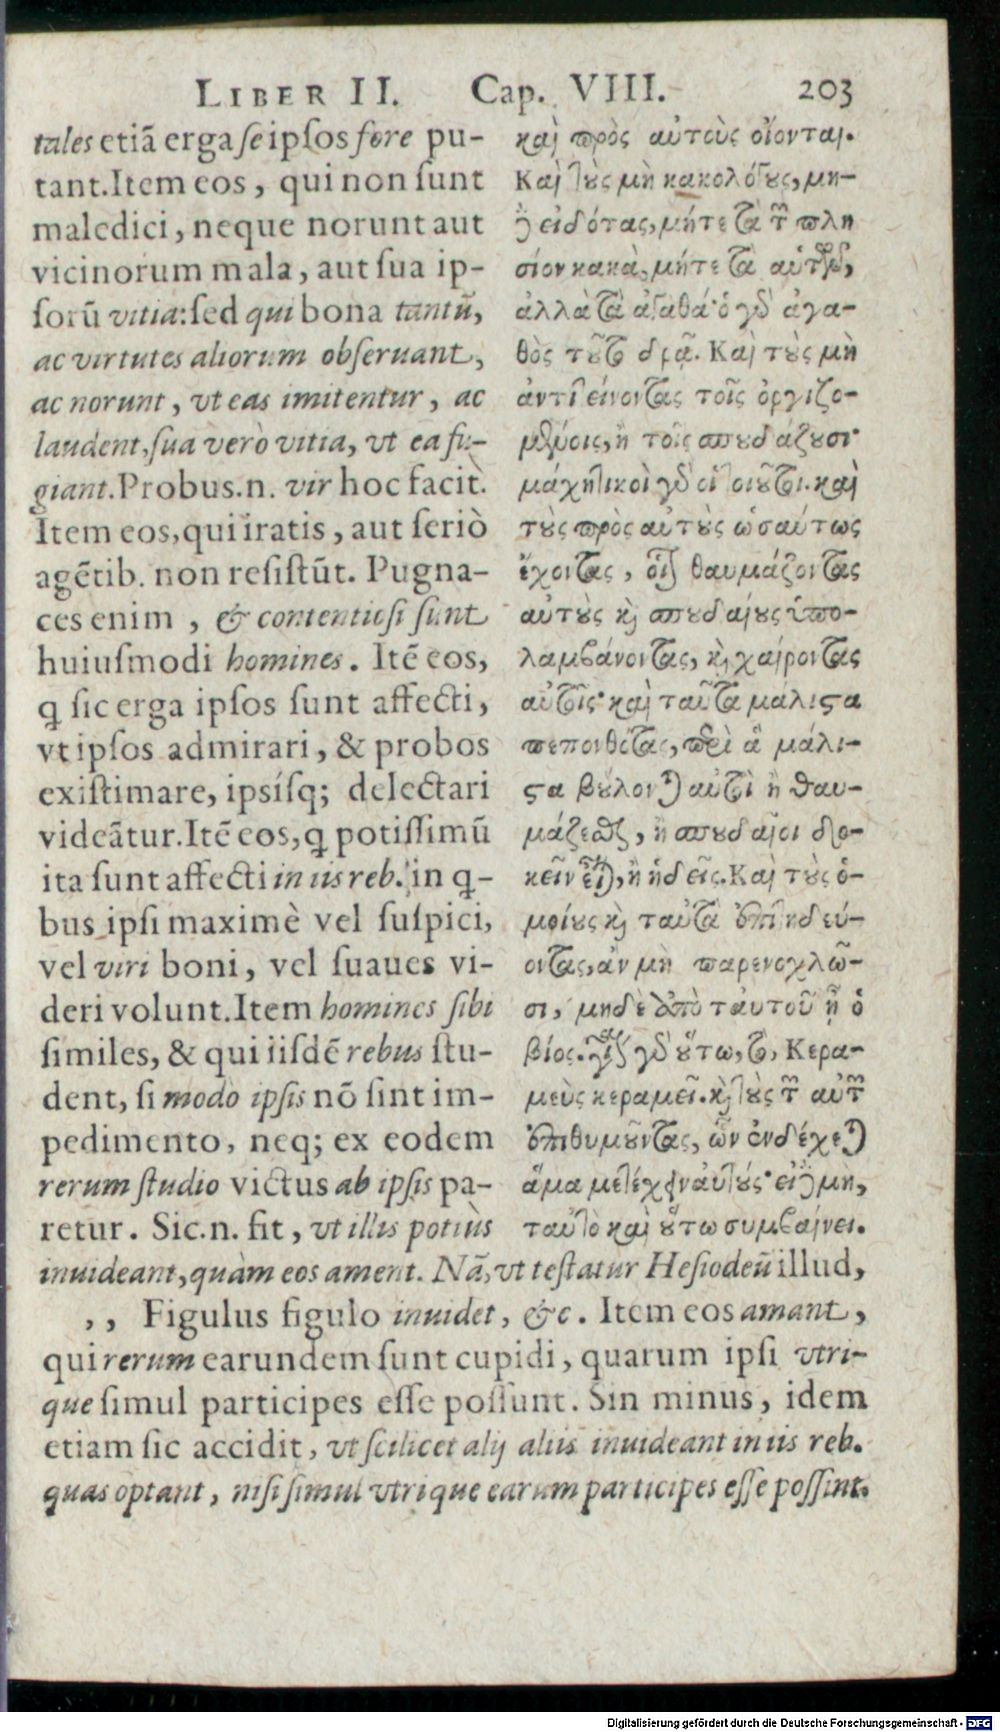 LIBER II. Cap. VIII. 203
tales etiã erga se ipsos fore pu-
tant. Item eos, qui non sunt
maledici, neque norunt aut
vicinorum mala, aut sua ip-
sorũ vitia: sed qui bona tantũ,
ac virtutes aliorum obseruant,
ac norunt, vt eas imitentur, ac
laudent, sua verò vitia, vt ea fu-
giant. Probus .n. vir hoc facit.
Item eos, qui iratis, aut seriò
agẽtib. non resistũt. Pugna-
ces enim, & contentiosi sunt
huiusmodi homines. Itẽ eos,
q sic erga ipsos sunt affecti,
vt ipsos admirari, & probos
existimare, ipsísq; delectari
videãtur. Itẽ eos, q potissimũ
ita sunt affecti in iis reb. in q-
bus ipsi maximè vel suspici,
vel viri boni, vel suaues vi-
deri volunt. Item homines sibi
similes, & qui iisdẽ rebus stu-
dent, si modo ipsis nõ sint im-
pedimento, neq; ex eodem
rerum studio victus ab ipsis pa-
retur. Sic .n. fit, vt illis potiùs
καὶ πρὸς αὐτοὺς οἴονται.
Καὶ τοὺς μὴ κακολόγους, μη-
δὲ εἰδότας, μήτε τὰ τῶν πλη
σίον κακὰ, μήτε τὰ αὑτῶν,
ἀλλὰ τὰ ἀγαθά· ὁ γὰρ ἀγα-
θὸς τοῦτο δρᾷ. Καὶ τοὺς μὴ
ἀντιτείνοντας τοῖς ὀργιζο-
μένοις, ἢ τοῖς σπουδάζουσι·
μάχητικοὶ γὰρ οἱ τοιοῦτοι. καὶ
τοὺς πρὸς αὐτοὺς ὡσαύτως
ἔχοντας, οἷον θαυμάζοντας
αὐτοὺς καὶ σπουδαίους ὑπο-
λαμβάνοντας, καὶ χαίροντας
αὐτοῖς· καὶ ταῦτα μάλιστα
πεπονθότας, περὶ ἃ μάλι-
στα βούλονται αὐτοὶ ἢ θαυ-
μάζεσθαι, ἢ σπουδαῖοι δο-
κεῖν εἶναι, ἢ ἡδεῖς. Καὶ τοὺς ὁ-
μοίους καὶ ταὐτὰ ἐπιτηδεύ-
οντας, ἂν μὴ παρενοχλῶ-
σι, μηδὲ ἀπὸ ταυτοῦ ᾖ ὁ
βίος. γίγνεται γὰρ οὕτω, τὸ, Κερα-
μεὺς κεραμεῖ. καὶ τοὺς τῶν αὐτῶν
ἐπιθυμοῦντας, ὧν ἐνδέχεται
ἅμα μετέχειν αὐτούς· εἰ δὲ μὴ,
ταὐτὸ καὶ οὕτω συμβαίνει.
inuideant, quàm eos ament. Nã, vt testatur Hesiodeũ illud,
,, Figulus figulo inuidet, &c. Item eos amant,
qui rerum earundem sunt cupidi, quarum ipsi vtri-
que simul participes esse possunt. Sin minus, idem
etiam sic accidit, vt scilicet alij aliis inuideant in iis reb.
quas optant, nisi simul vtrique earum participes esse possint.
Digitalisierung gefördert durch die Deutsche Forschungsgemeinschaft - DFG